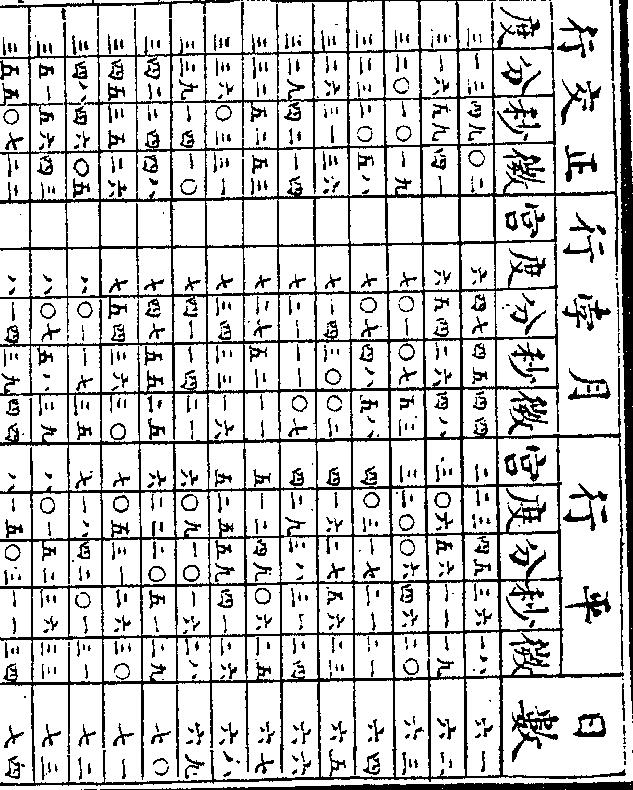 日 平行 月孛行 正交行
數 宮 度 分 秒 微 宮 度 分 秒 微 度 分 秒 微
六一 二 二三 四五 三六 一八 六 四七 四五 四四 三 一三 四九 〇二
六二 三 〇六 五六 一一 一九 六 五四 二六 四八 三 一六 五九 四一
六三 三 二〇 〇六 四六 二〇 七 〇一 〇七 五三 三 二〇 一〇 一九
六四 四 〇三 一七 二一 二一 七 〇七 四八 五八 三 二三 二〇 五八
六五 四 一六 二七 五六 二三 七 一四 三〇 〇二 三 二六 三一 三六
六六 四 二九 三八 三一 二四 七 二一 一一 〇七 三 二九 四二 一四
六七 五 一二 四九 〇六 二五 七 二七 五二 一一 三 三二 五二 五三
六八 五 二五 五九 四一 二六 七 三四 三三 一六 三 三六 〇三 三一
六九 六 〇九 一〇 一六 二八 七 四一 一四 二一 三 三九 一四 一〇
七〇 六 二二 二〇 五一 二九 七 四七 五五 二五 三 四二 二四 四八
七一 七 〇五 三一 二六 三〇 七 五四 三六 三〇 三 四五 三五 二六
七二 七 一八 四二 〇一 三一 八 〇一 一七 三五 三 四八 四六 〇五
七三 八 〇一 五二 三六 三三 八 〇七 五八 三九 三 五一 五六 四三
七四 八 一五 〇三 一一 三四 八 一四 三九 四四 三 五五 〇七 二二